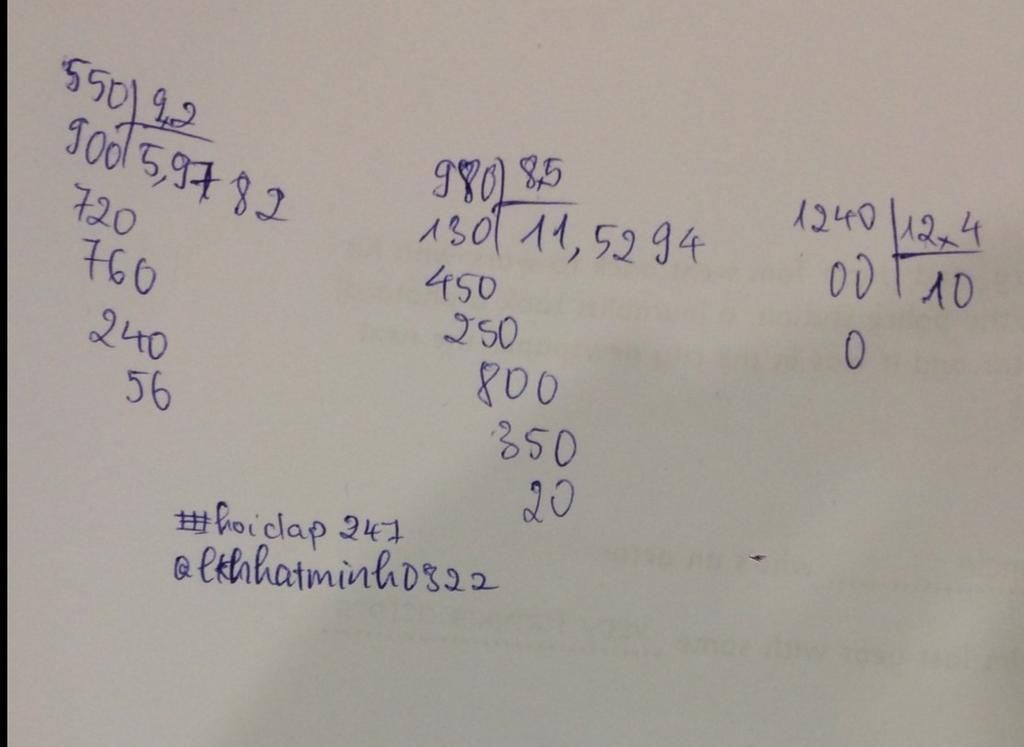 550 | 9,2
900 | 5,9782
720
760
240
56
980 | 8,5
130 | 11,5294
450
250
800
350
20
1240 | 12,4
00 | 10
0
#hoidap247